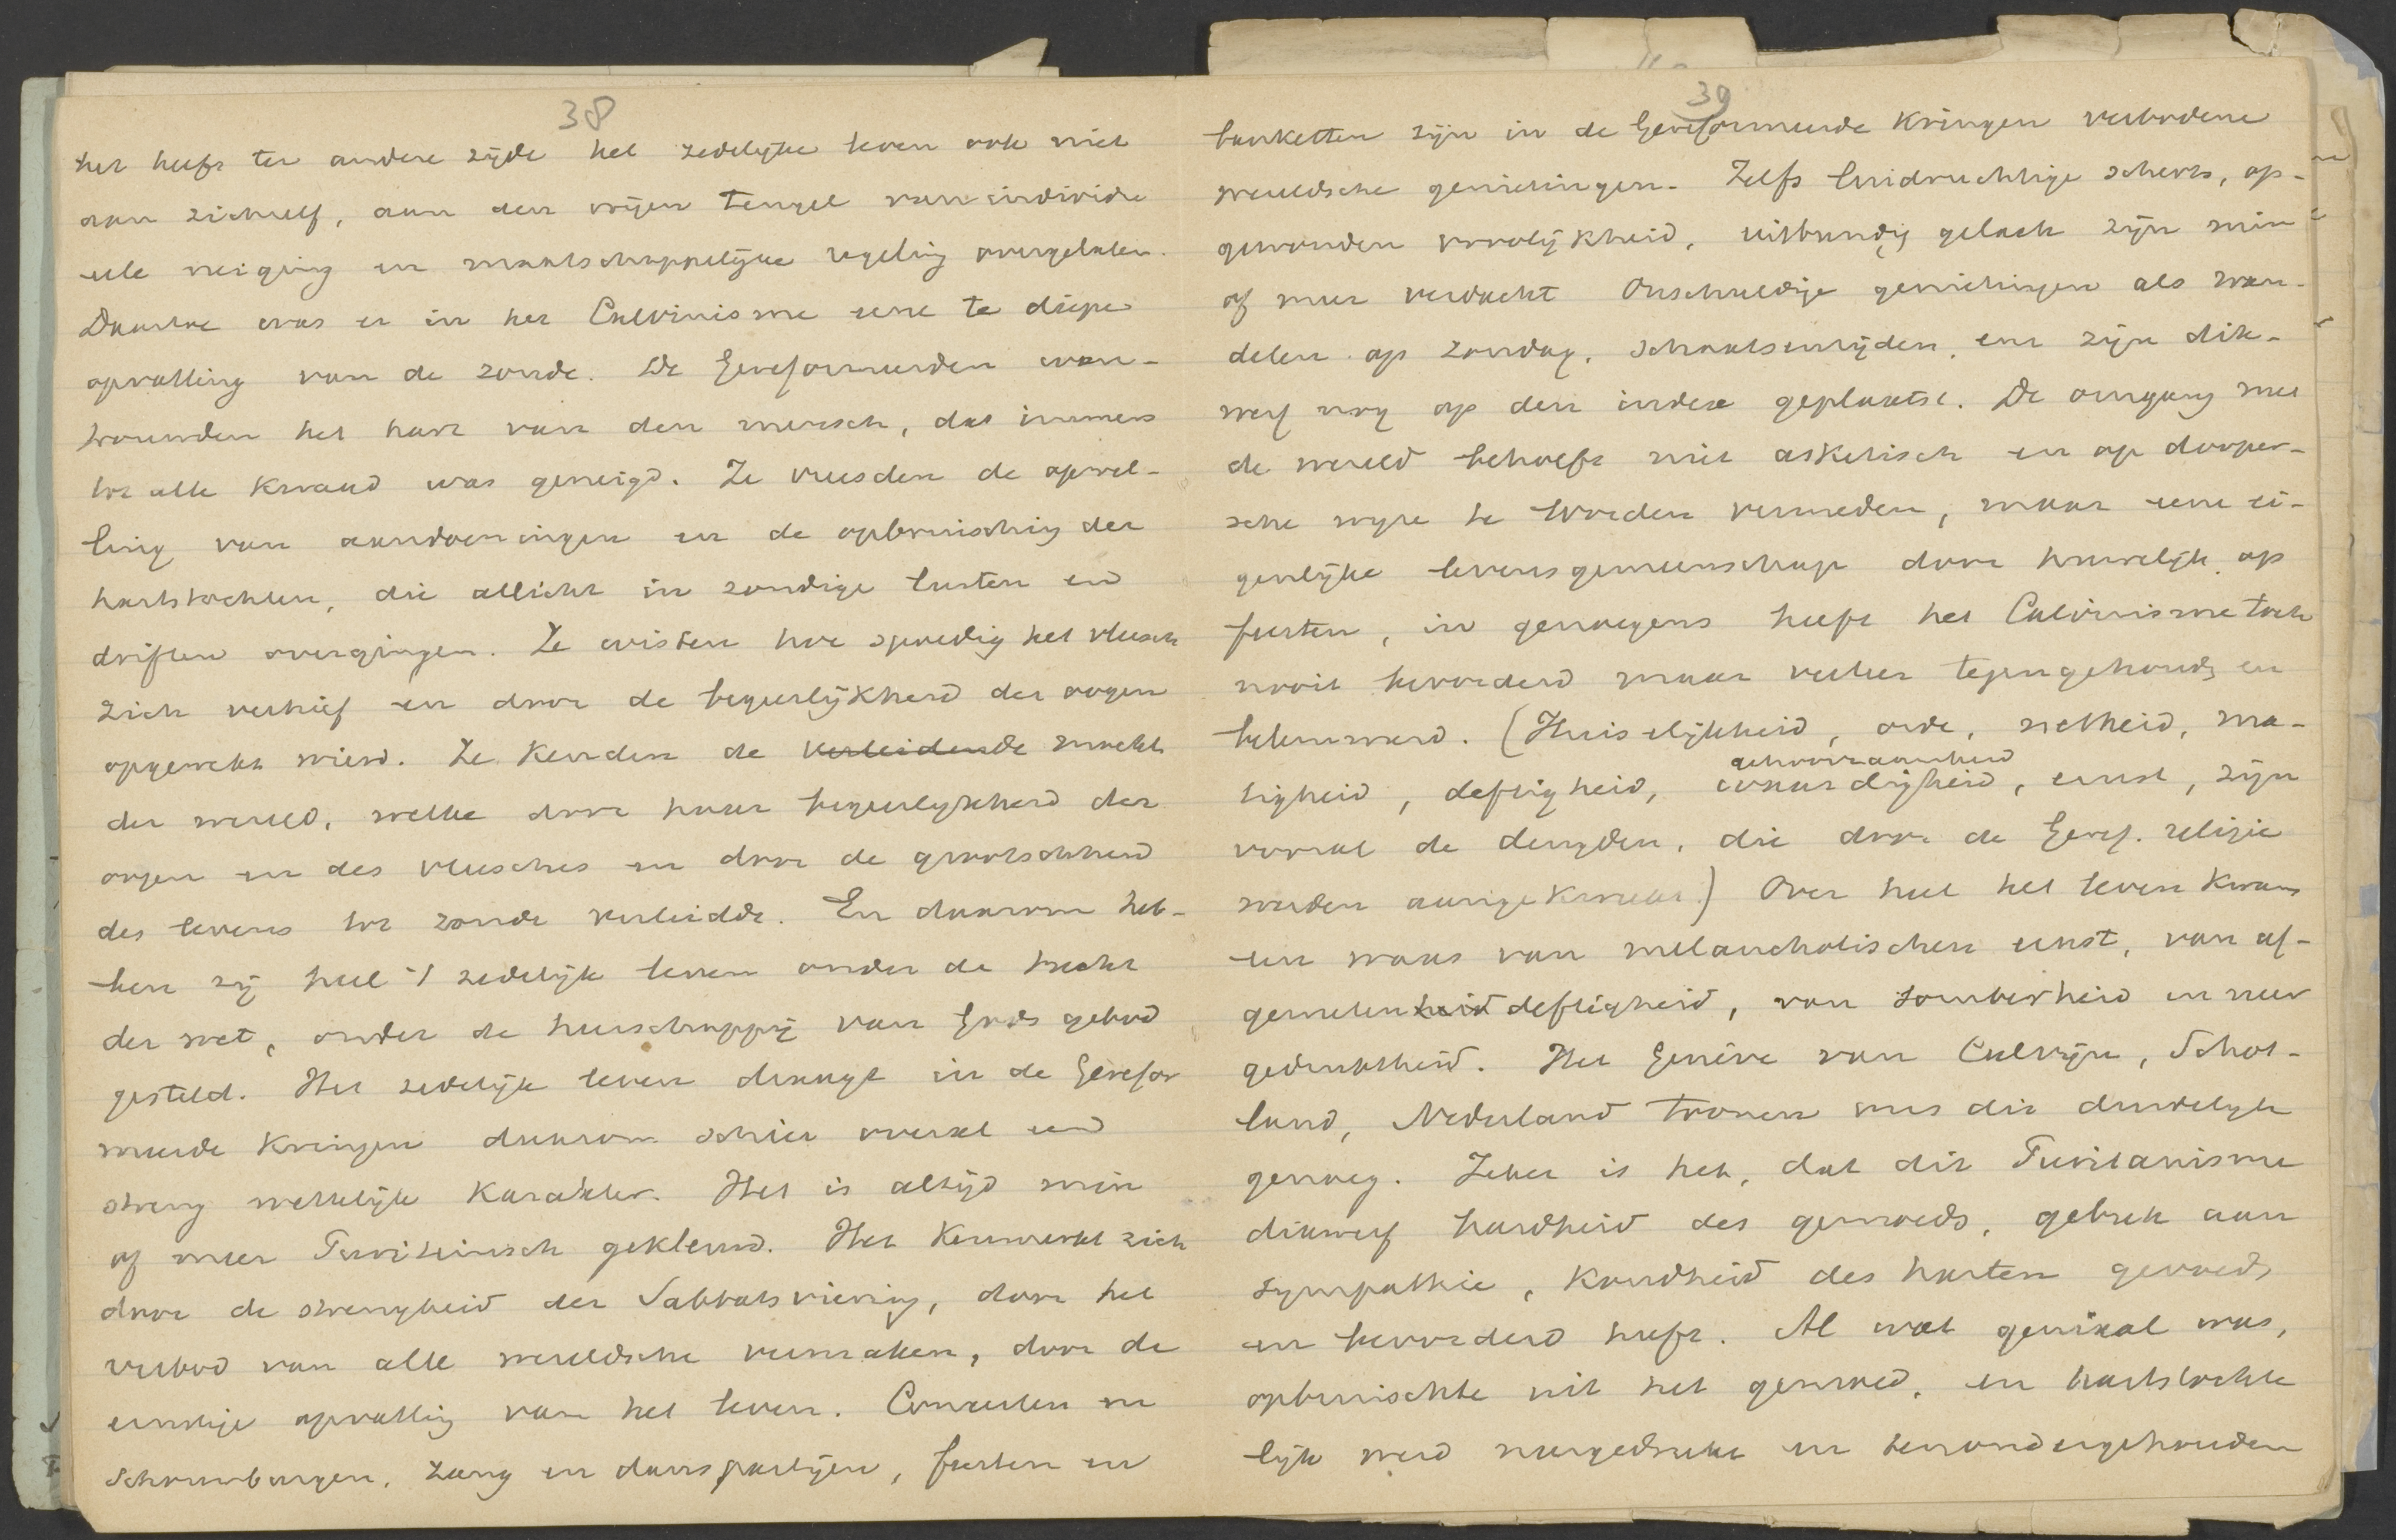 38
het heeft ter andere zijde het zedelijke leven ook niet
aan zichzelf, aan den vrijen teugel van individu
eele neiging en maatschappelijke regeling overgelaten.
Daartoe was er in het Calvinisme eene te diepe
opvatting van de zonde. De Gereformeerden wan-
trouwden het hart van den mensch, dat immers
tot alle kwaad was geneigd. Ze vreesden de opwel-
ling van aandoeningen en de opbruisching der
hartstochten, die allicht in zondige lusten en
driften overgingen. Ze wisten hoe spoedig het vleesch
zich verhief en door de begeerlijkheid der oogen
opgewekt wierd. Ze kenden de verleidende macht
der wereld, welke door haar begeerlijkheid der
oogen en des vleesches en door de grootschheid
des levens tot zonde verleidde. En daarom heb-
ben zij heel 't zedelijk leven onder de tucht
der wet, onder de heerschappij van Gods gebod
gesteld. Het zedelijk leven draagt in de Gerefor
meerde kringen daarom schier overal een
streng wettelijk karakter. Het is altijd min
of meer Puriteinsch gekleurd. Het kenmerkt zich
door de strengheid der Sabbatsviering, door het
verbod van alle wereldsche vermaken, door de
ernstige opvatting van het leven. Concerten en
Schouwburgen, zang en danspartijen, feesten en
39
banketten zijn in de Gereformeerde kringen verbodene
wereldsche genietingen. Zelfs luidruchtige scherts, op-
gewonden vroolijkheid, uitbundig gelach zijn min
of meer verdacht Onschuldige genietingen als wan-
delen op zondag, schaatsenrijden, enz zijn dik-
werf nog op den index geplaatst. De omgang met
de wereld behoeft niet asketisch en op dooper-
sche wijze te worden vermeden, maar eene ei-
genlijke levensgemeenschap door huwelijk op
feesten, in genoegens heeft het Calvinisme toch
nooit bevorderd maar veeleer tegengehoud en
belemmerd. (Huiselijkheid, orde, netheid, ma-
gehoorzaamheid
tigheid, deftigheid, waardigheid, ernst, zijn
vooral de deugden, die door de Geref. religie
werden aangekweekt.) Over heel het leven kwam
een waas van melancholischen ernst, van af-
gemetenheid deftigheid, van somberheid en neer
gedruktheid. Het Genève van Calvijn, Schot-
land, Nederland toonen ons dit duidelijk
genoeg. Zeker is het, dat dit Puritanisme
dikwerf hardheid des gemoeds, gebrek aan
sympathie, koudheid des harten gevoed
en bevorderd heeft. Al wat geniaal was,
opbruischte uit het gemoed, en hartstochte
lijk werd neergedrukt en tenondergehouden